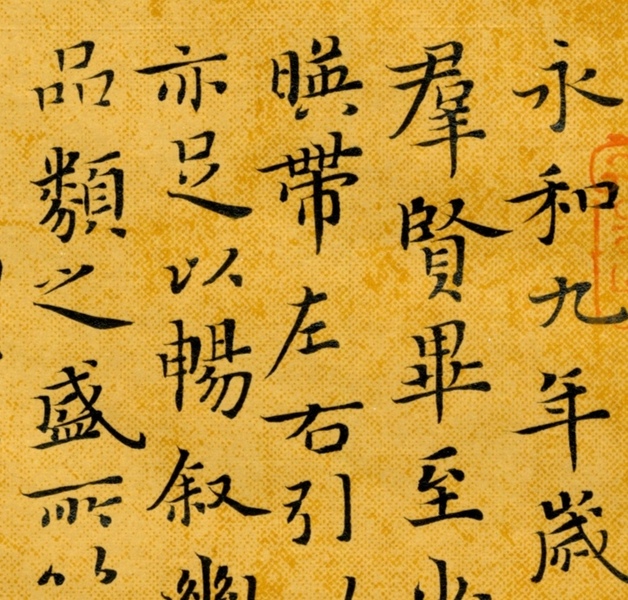 永和九年歲
羣賢畢至少
暎帶左右引
亦足以暢叙幽
品類之盛所以